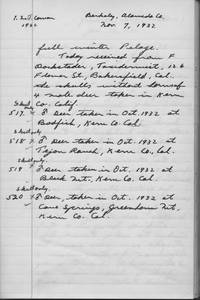 I. McT. Cowan
1932
Berkeley, Alameda Co.
Nov 7, 1932
full winter Pelage.
Today received from F
Dorkstader, Taxidermist, 126
Flower St, Bakersfield, Cal.
six skulls without lower
4 male deer taken in Kern
Co. Calif.
Skull only
517. ♂ Deer taken in Oct. 1932 at
Bodfish, Kern Co. Cal.
Skull only
518 ♂ Deer taken in Oct. 1932 at
Tejon Ranch, Kern Co. Cal.
Skull only.
519 ♂ Deer taken in Oct. 1932 at
Black Mt. Kern Co. Cal.
Skull only.
520 ♂ Deer taken in Oct. 1932 at
Cane Springs, Greenhorn Mt.
Kern Co. Cal.